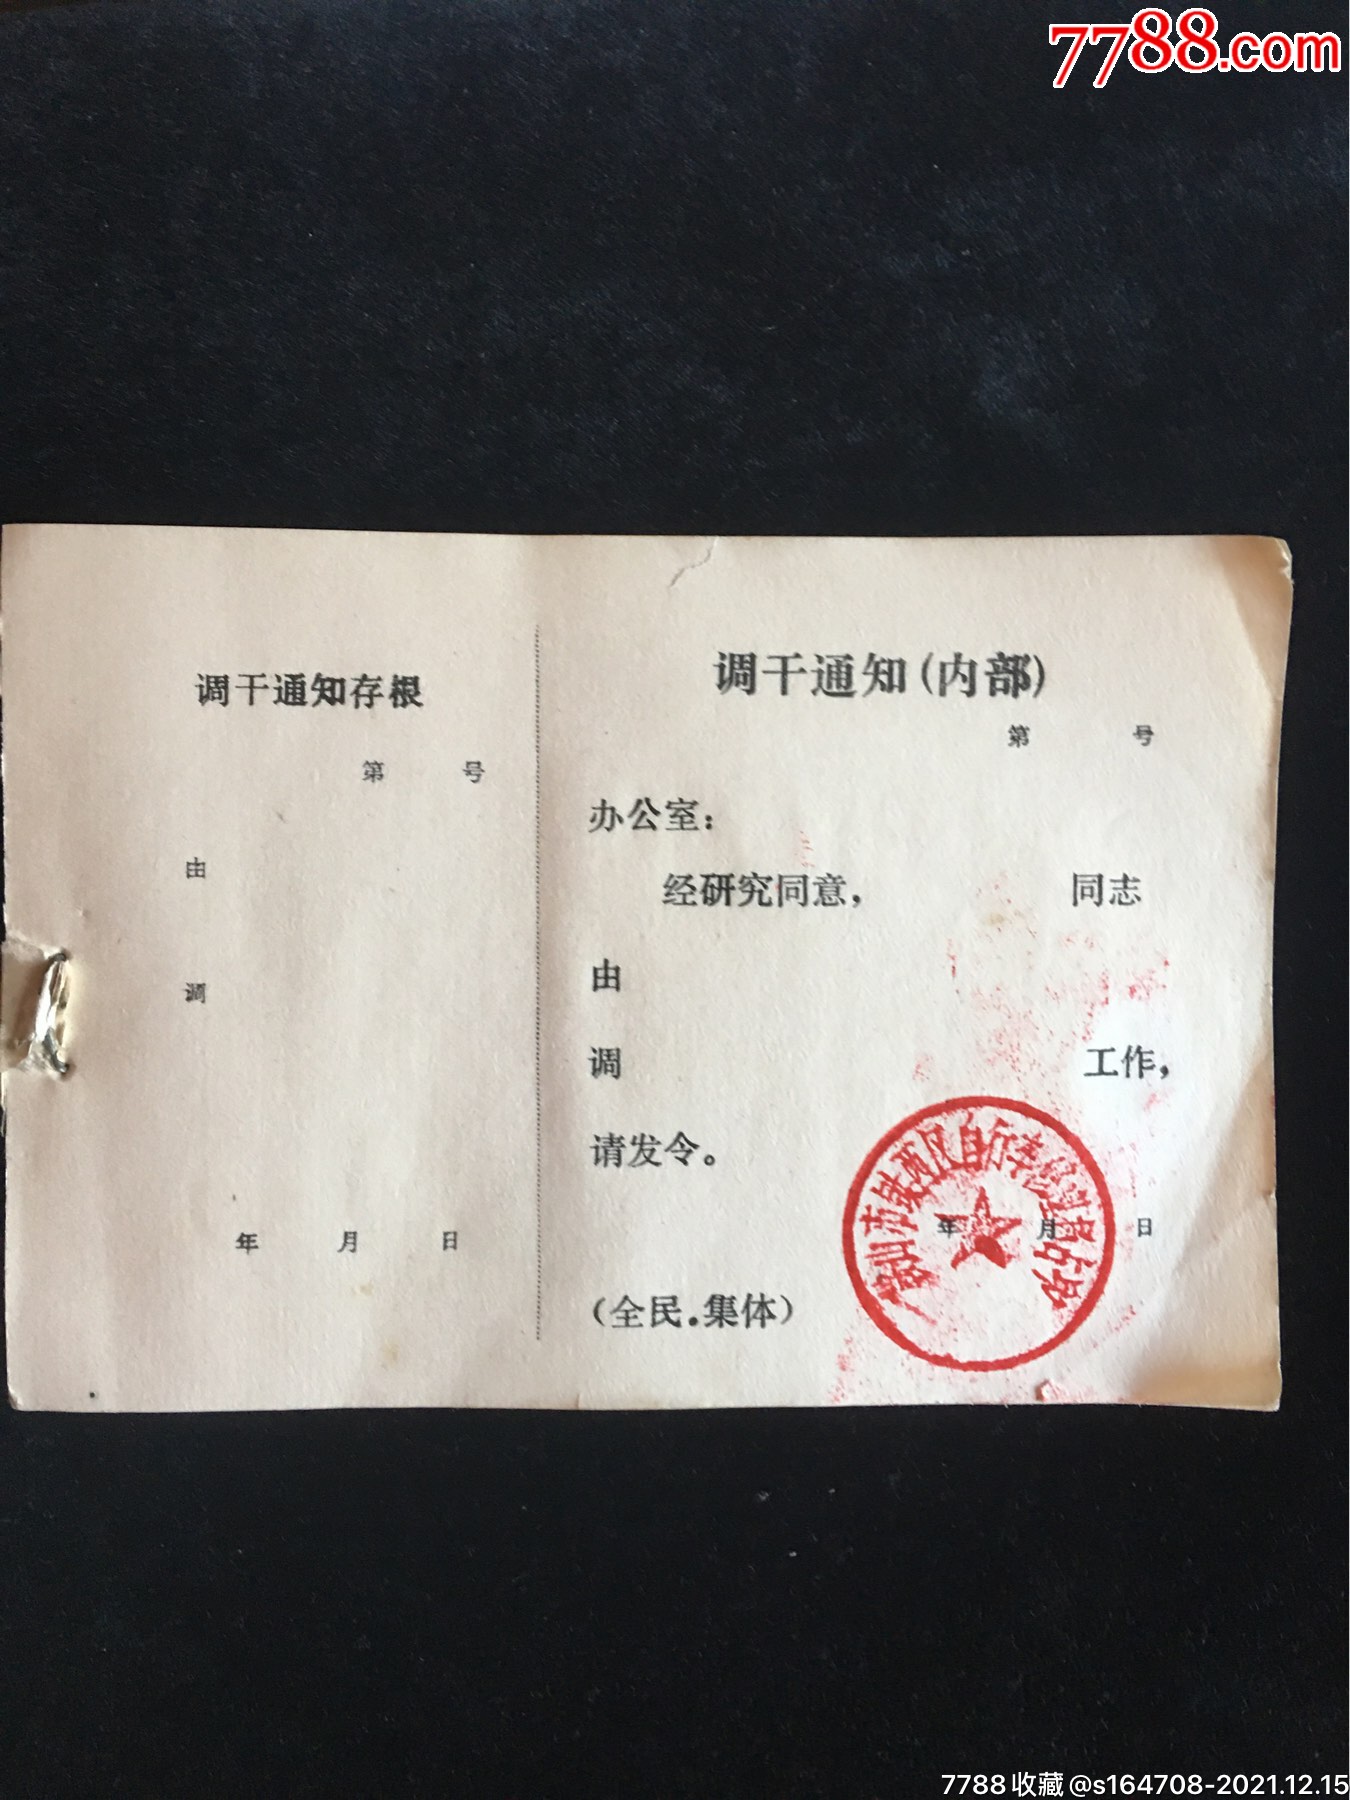 7788.com
调干通知存根
第 号
由
调
年 月 日
调干通知(内部)
第 号
办公室:
经研究同意, 同志
由
调 工作,
请发令。
年 月 日
(全民.集体)
市 西区自行车
7788收藏@s164708-2021.12.15